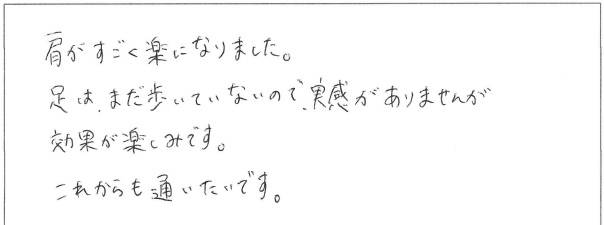 肩がすごく楽になりました。
足は、まだ歩いていないので、実感がありませんが
効果が楽しみです。
これからも通いたいです。